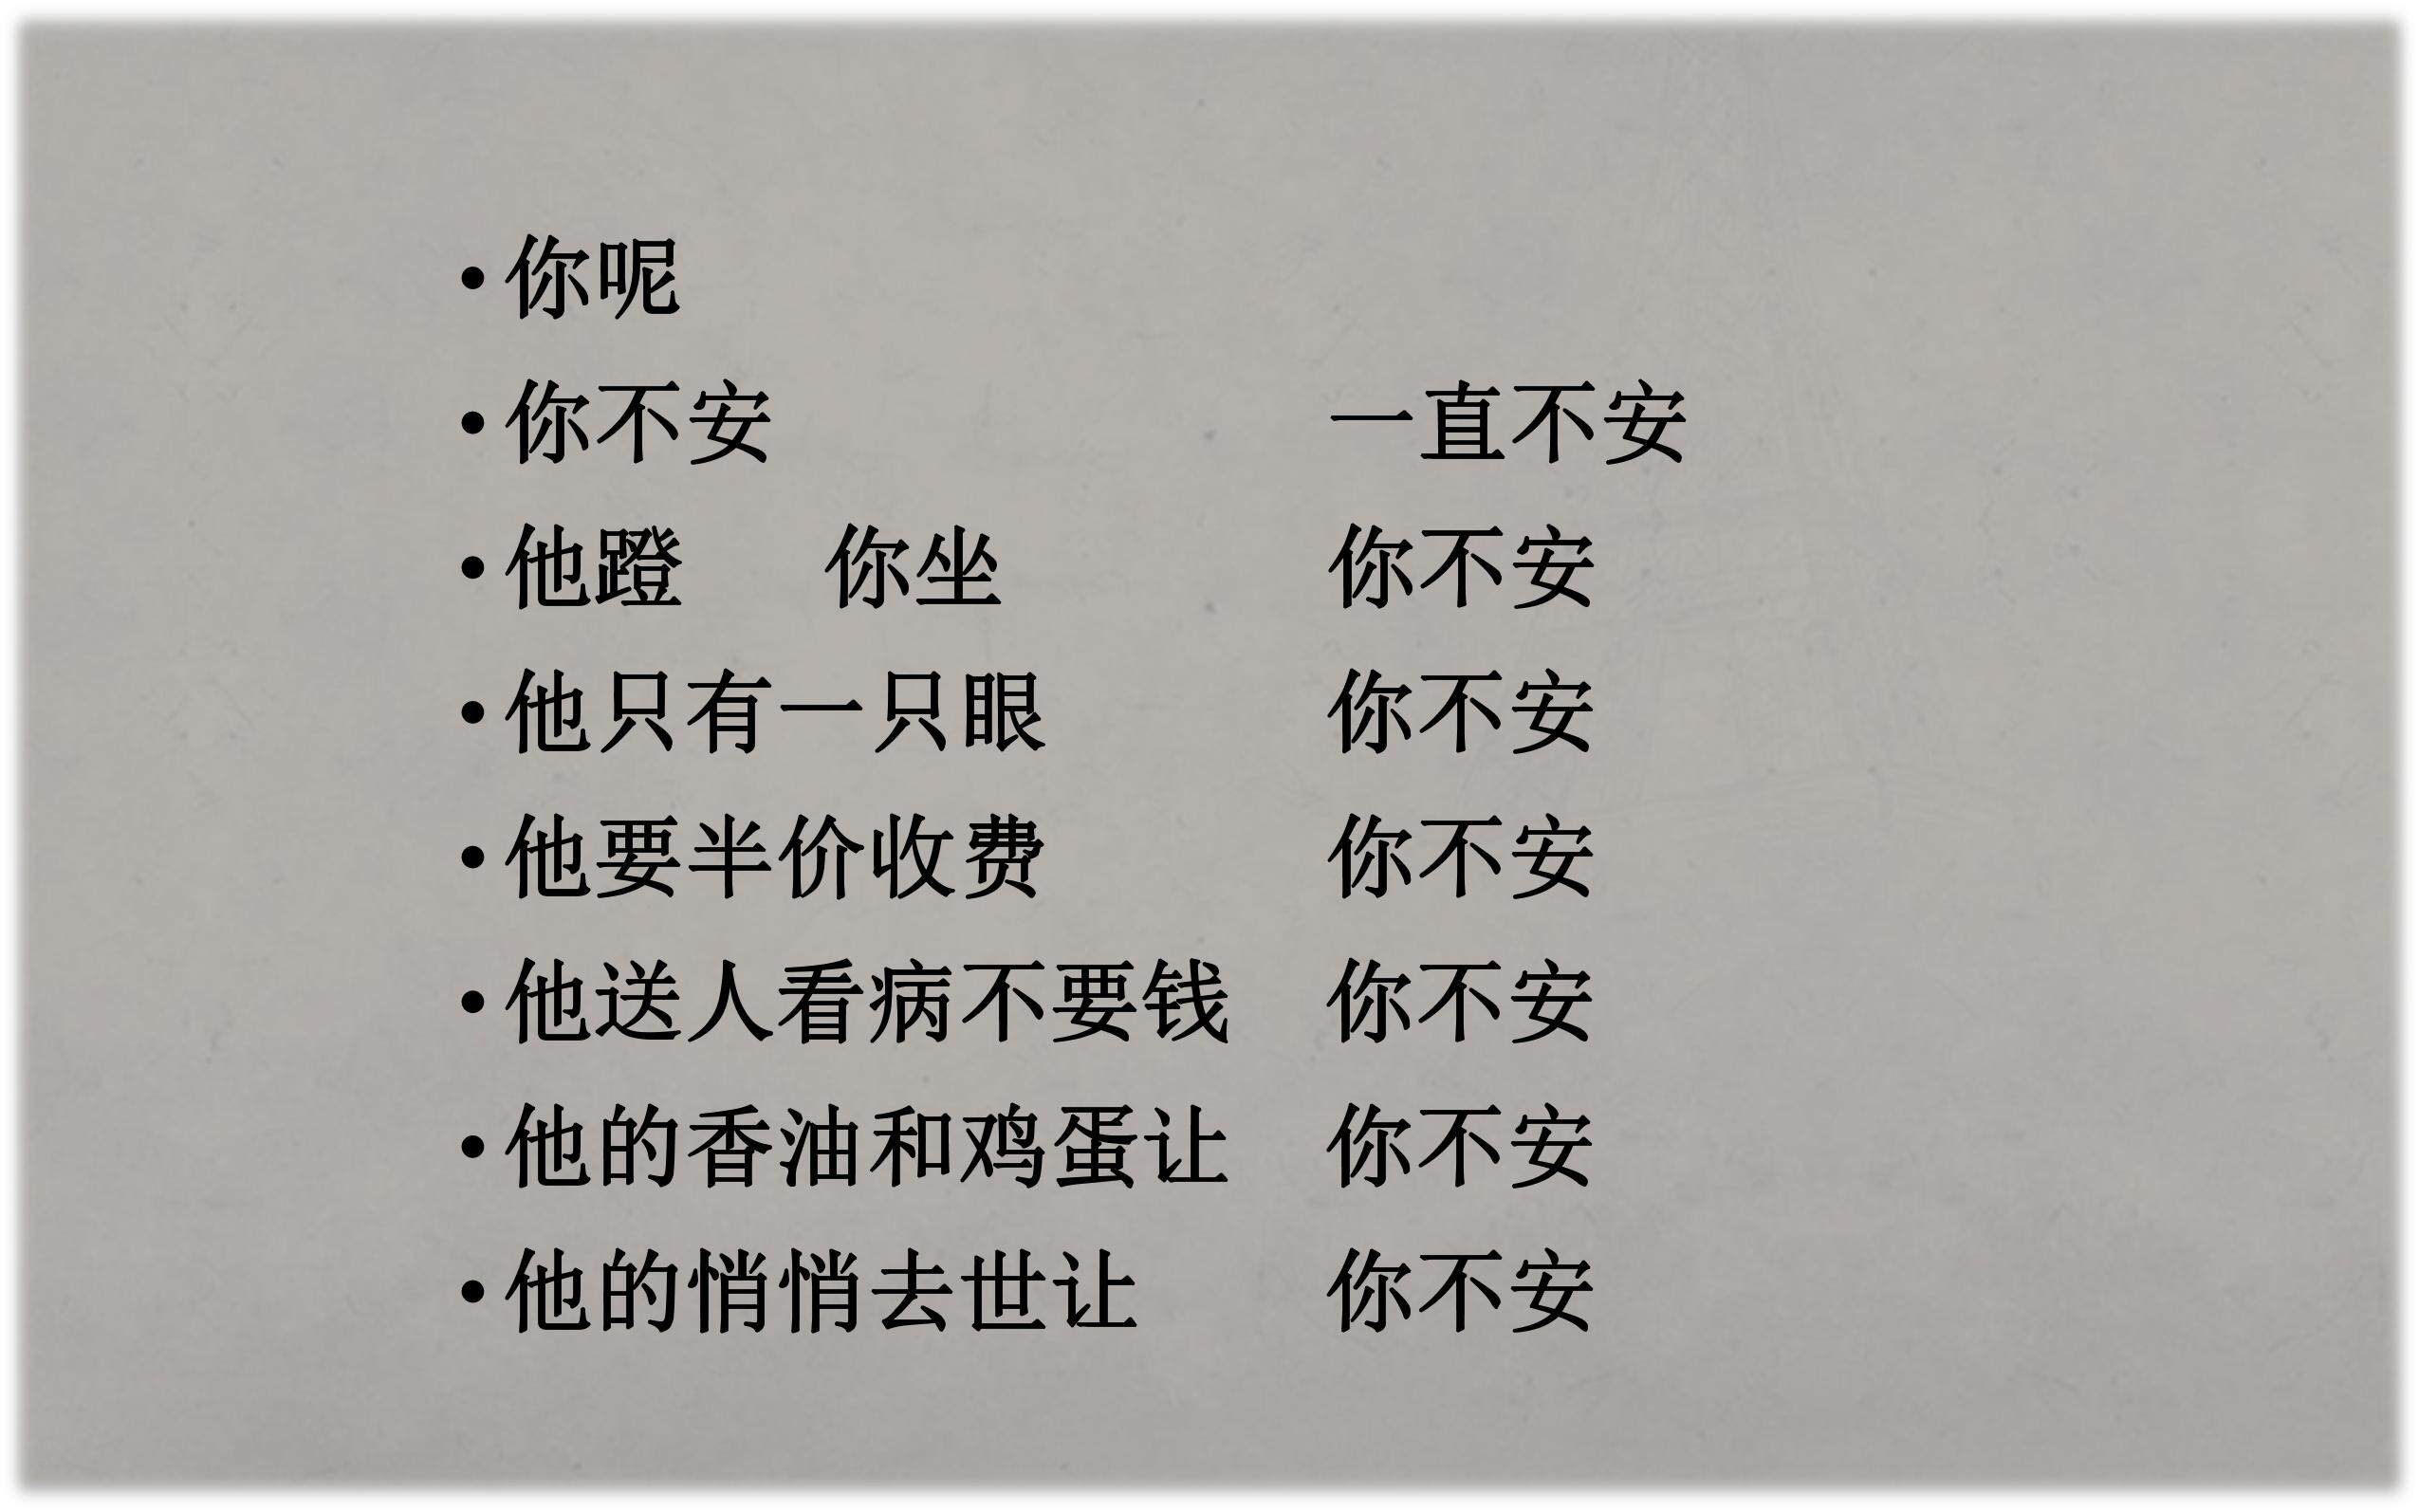 • 你呢
• 你不安 一直不安
• 他蹬 你坐 你不安
• 他只有一只眼 你不安
• 他要半价收费 你不安
• 他送人看病不要钱 你不安
• 他的香油和鸡蛋让 你不安
• 他的悄悄去世让 你不安